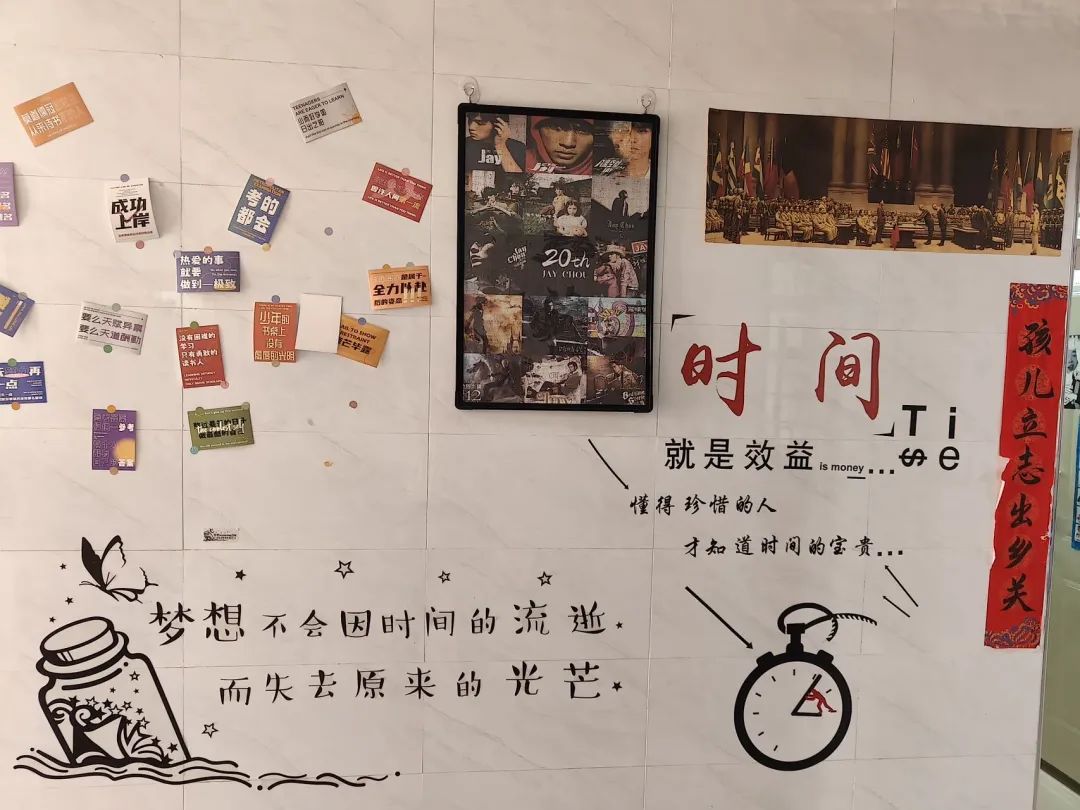 TEENAGERS
ARE EAGER TO LEARN
少而好学如
日出之阳
成功
上岸
考的
都会
热爱的事
就要
做到极致
全力以赴
后的姿态
要么天赋异禀
要么天道酬勤
没有困难的
学习
只有勇敢的
读书人
少年的
书桌上
没有
虚度的光阴
参考
答案
再
一点
Jay
20th
JAY CHOU
时间
Ti
$e
就是效益 is money...
懂得珍惜的人
才知道时间的宝贵...
孩儿立志出乡关
梦想不会因时间的流逝
而失去原来的光芒